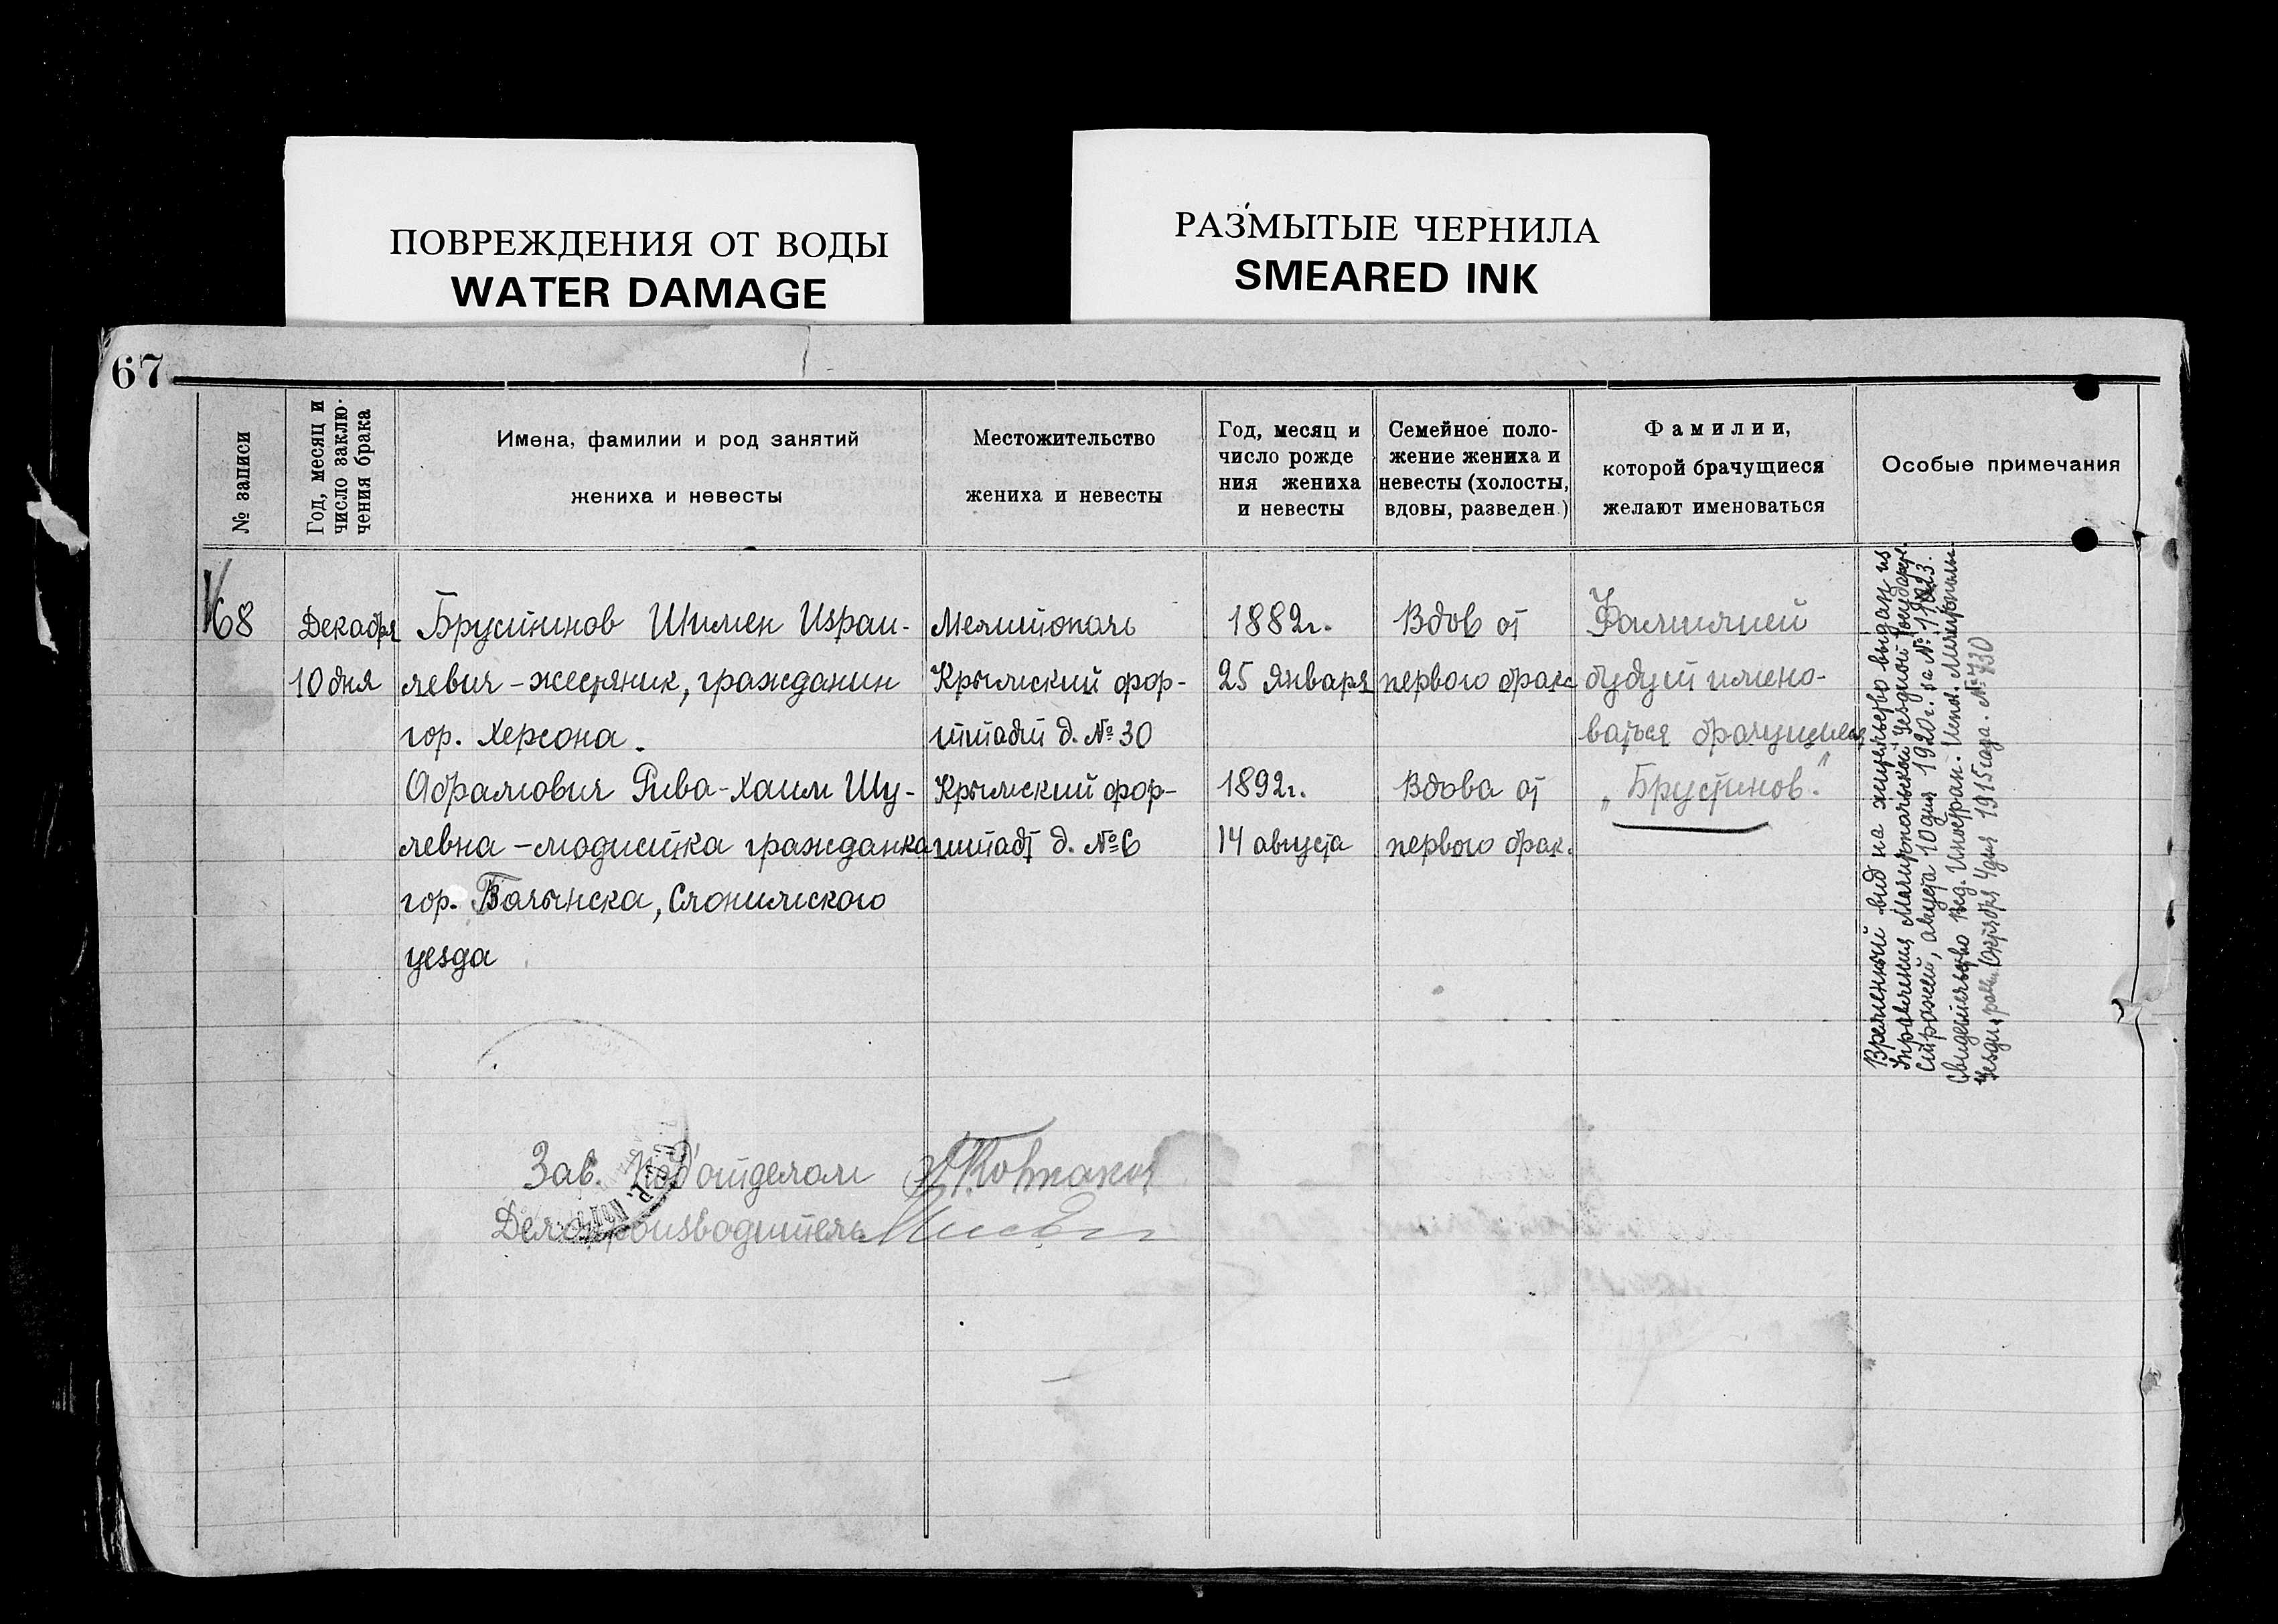 ПОВРЕЖДЕНИЯ ОТ ВОДЫ
WATER DAMAGE
РАЗМЫТЫЕ ЧЕРНИЛА
SMEARED INK
67
№ записи
Год, месяц и
число заклю-
чения брака
Имена, фамилии и род занятий
жениха и невесты
Местожительство
жениха и невесты
Год, месяц и
число рожде
ния жениха
и невесты
Семейное поло-
жение жениха и
невесты (холосты,
вдовы, разведен.)
Фамилии,
которой брачущиеся
желают именоваться
Особые примечания
68
Декабря
10 дня
Брустинов Шимен Израи-
левич - жестяник, гражданин
гор. Херсона.
Абрамович Рива-Хаим Шу-
левна - модистка гражданка
гор. Слонимского
уезда
Мелитополь
Крымский фор-
штадт д. № 30
Крымский фор-
штадт д. № 6
1882г.
25 Января
1892г.
14 августа
Вдов от
первого брака
Вдова от
первого брак.
Фамилией
будут имено-
ваться брачущиеся
„Брустинов."
Временный вид на жительство выдан из
Управления Мелитопольской Уездной
Стражей, августа 10 дня 1920г. за №
Свидетельство
Октября 4 дня 1915 года. № 730
Зав. Под'отделом
Делопроизводитель